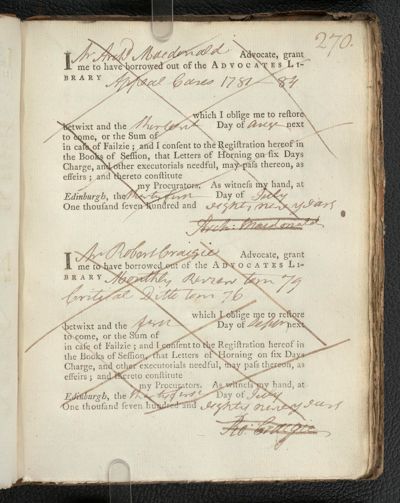 270.
I Mr Archd Macdonald Advocate, grant
me to have borrowed out of the ADVOCATES LI-
BRARY Appeal Cases 1781-84
which I oblige me to restore
betwixt and the thirteenth Day of next
to come, or the Sum of
in case of Failzie; and I consent to the Registration hereof in
the Books of Session, that Letters of Horning on six Days
Charge, and other executorials needful, may pass thereon, as
effeirs; and thereto constitute
my Procurators. As witness my hand, at
Edinburgh, the thirty first Day of July
One thousand seven hundred and eighty nine years
Arch: Macdonald
I Mr Robert Craigie Advocate, grant
me to have borrowed out of the ADVOCATES LI-
BRARY Monthly Review tom 79
Critical Ditto tom 76
which I oblige me to restore
betwixt and the first Day of next
to come, or the Sum of
in case of Failzie; and I consent to the Registration hereof in
the Books of Session, that Letters of Horning on six Days
Charge, and other executorials needful, may pass thereon, as
effeirs; and thereto constitute
my Procurators. As witness my hand, at
Edinburgh, the thirty first Day of July
One thousand seven hundred and eighty nine years
Ro: Craigie